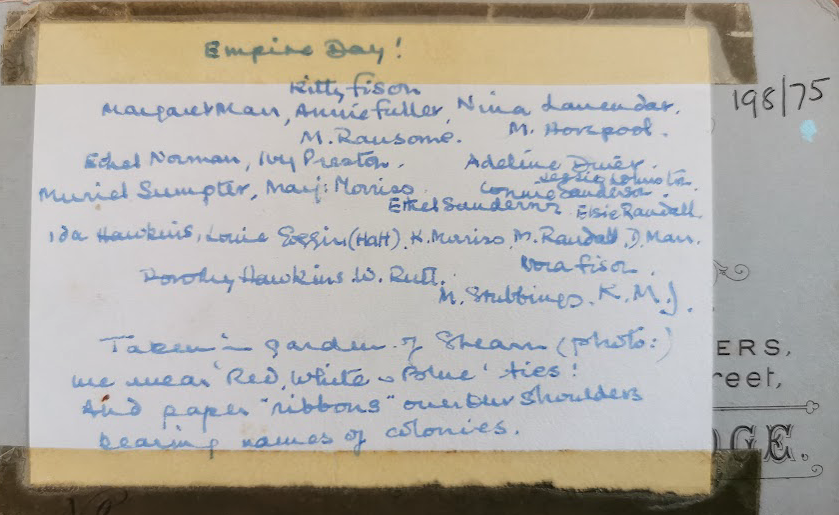 Empire Day!
198/75
Kitty Fison
Margaret Marr, Annie Fuller, Nina Lavendar.
M. Ransome. M. Horspool.
Ethel Norman, Ivy Preston. Adeline
Jessie Johnston
Muriel Sumpter, Marj: Morriso Connie Sanderson
Ethel Sanderson Elsie Randall.
Ida Hawkins, Louie Goggin (Hatt). K. Morriso, M. Randall, D. Marr.
Nora Fison.
Dorothy Hawkins. W. Rutt.
M. Stubbings. K. M. J.
Taken in garden of Shearn (photo:)
we wear 'Red, White & Blue' ties!
And paper "ribbons" over our shoulders
bearing names of colonies.
ERS,
reet,
DGE.